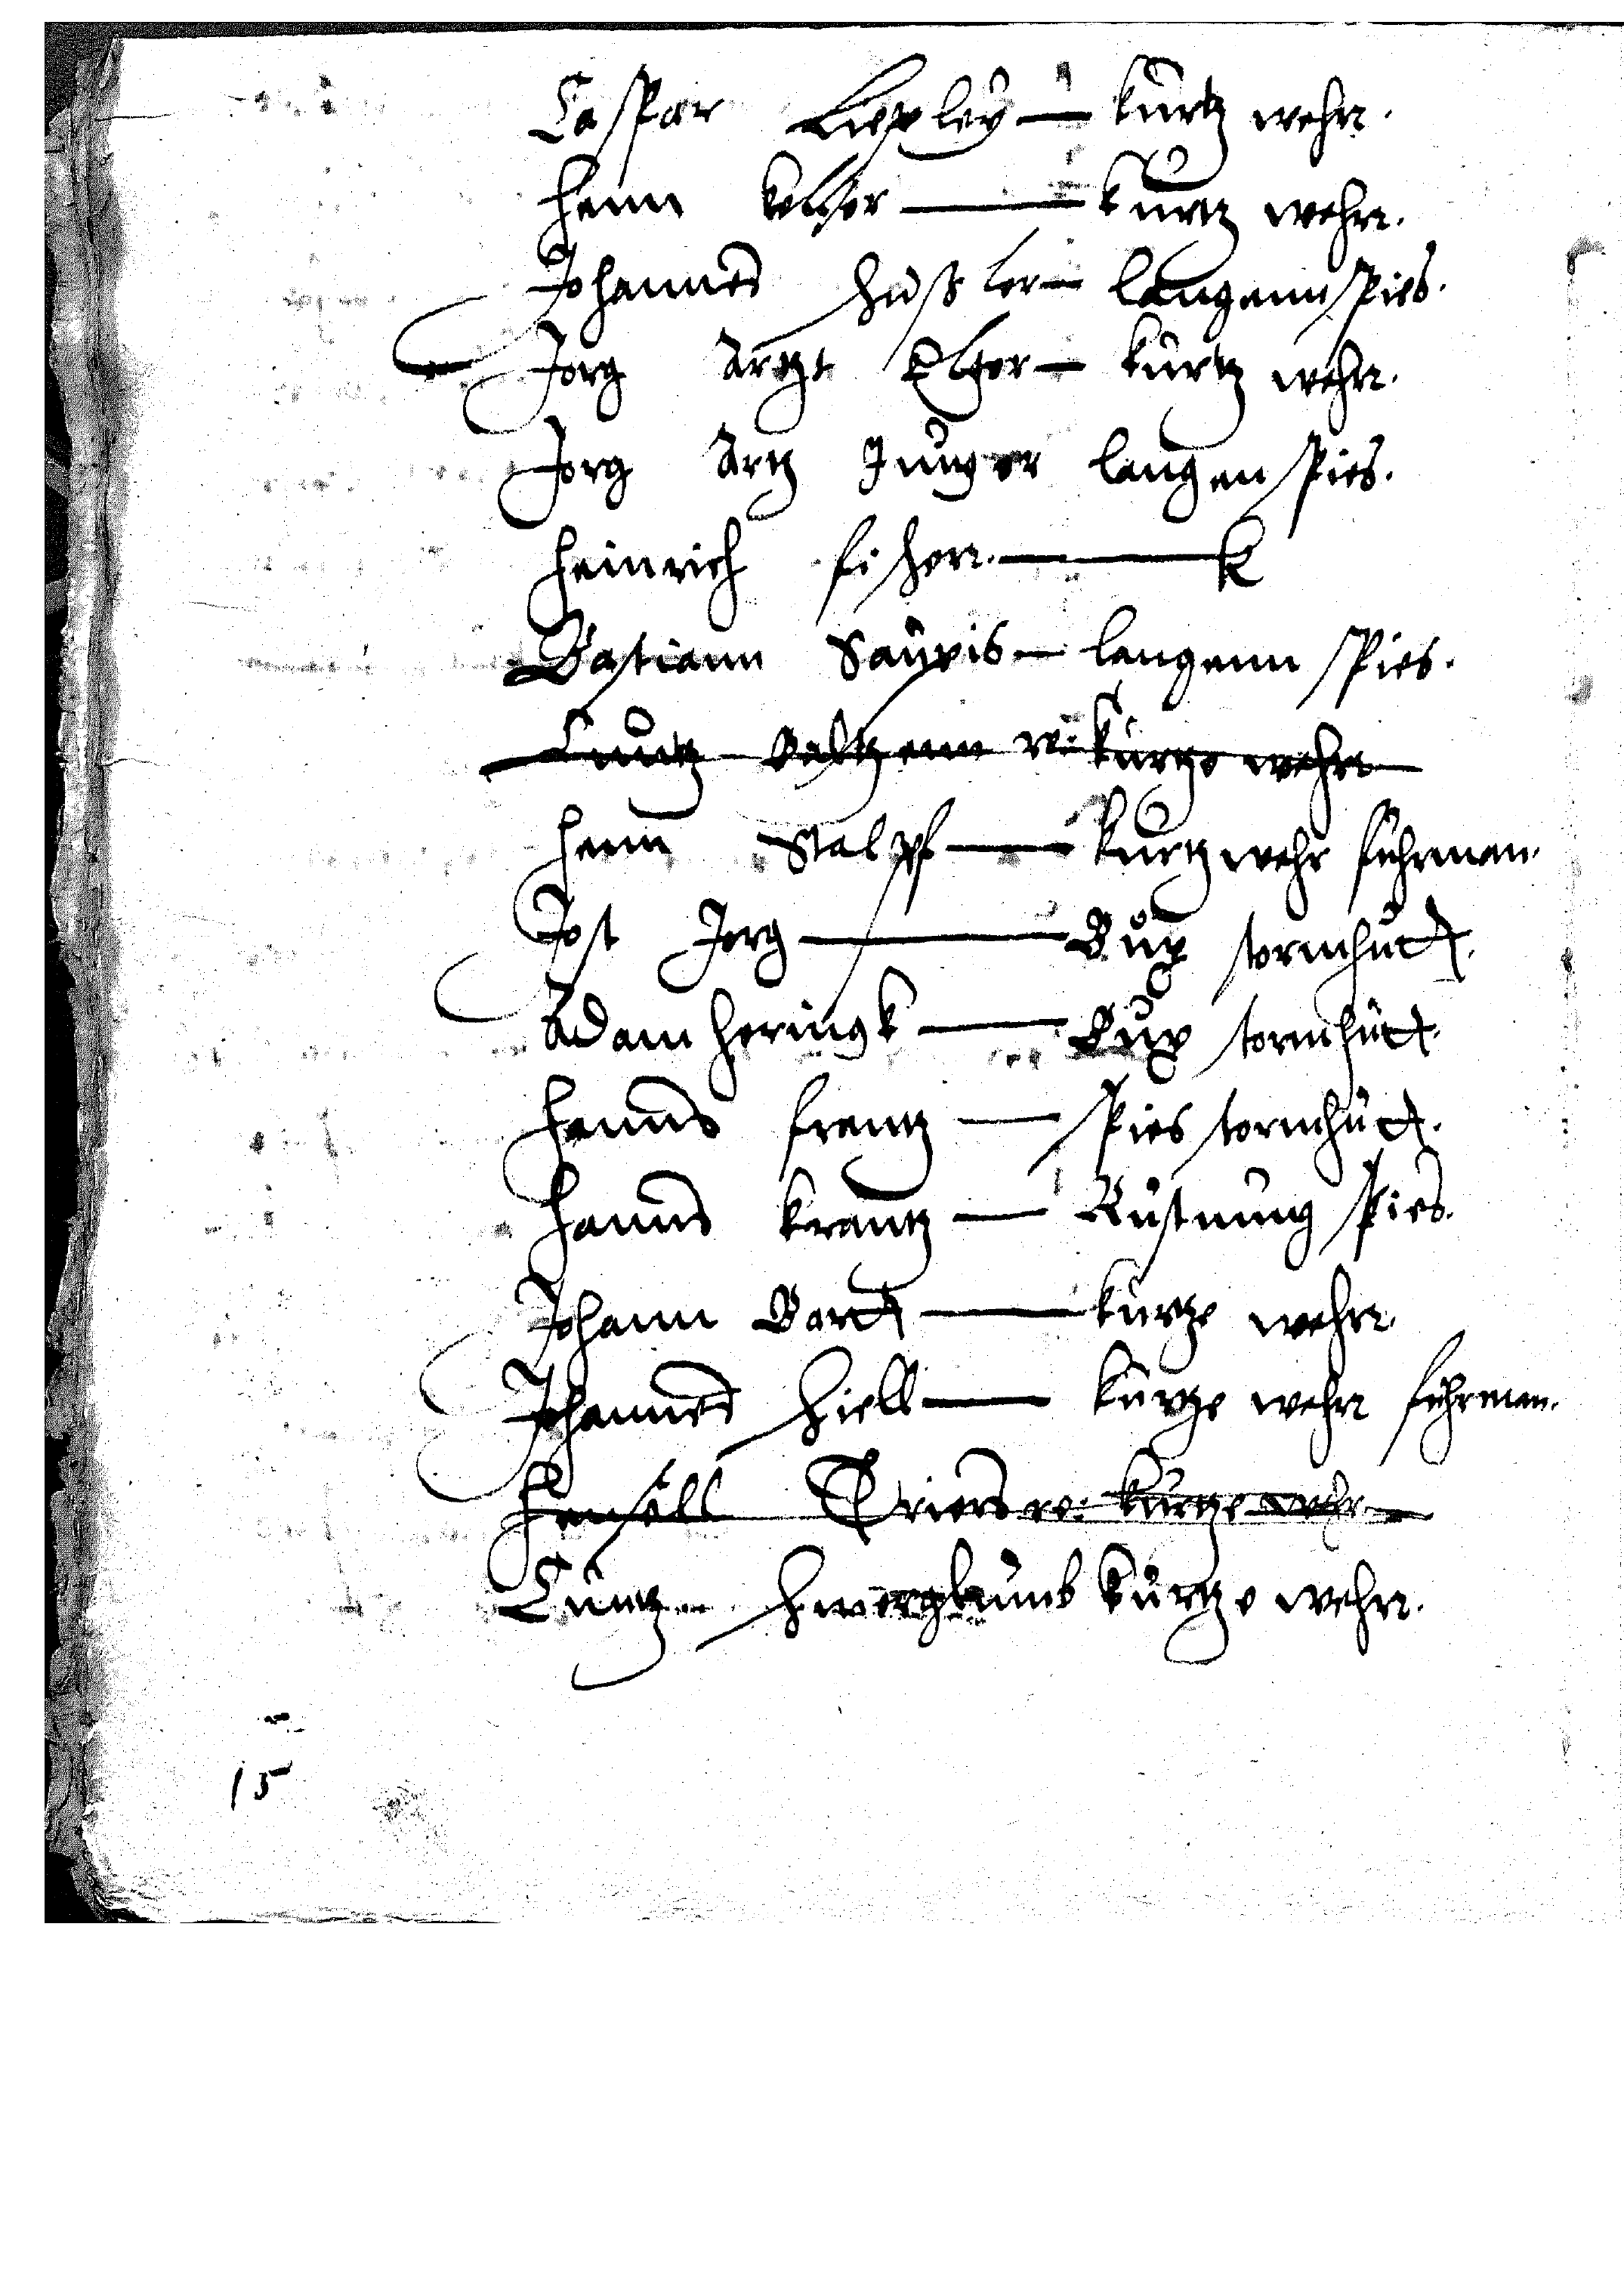 Caspar Lepley — kurtz wehr.
Henn kelher — kurtz wehr.
Johannes hußler — langenn spies.
Jorg Artzt Elter — kurtz wehr.
Jorg Artz Junger langen spies.
Heinrich fisherr. — k
Bastiann Sauris — langenn spies.
Cuntz Baltzenn w. kurtze wehr
Henn Stalpf — kurtz wehr fuhrman.
Jost Jorg — Bux sormhutt.
Adam heringk — Bux sormhutt.
Hanns frantz — spies sormhutt.
Hanns krantz — Rustnung spies.
Johann Bortt — kurtze wehr.
Johannes hiell — kurtze wehr fuhrman.
Hensell Triers w. kurtze wehr
Cuntz kurtze wehr.
15